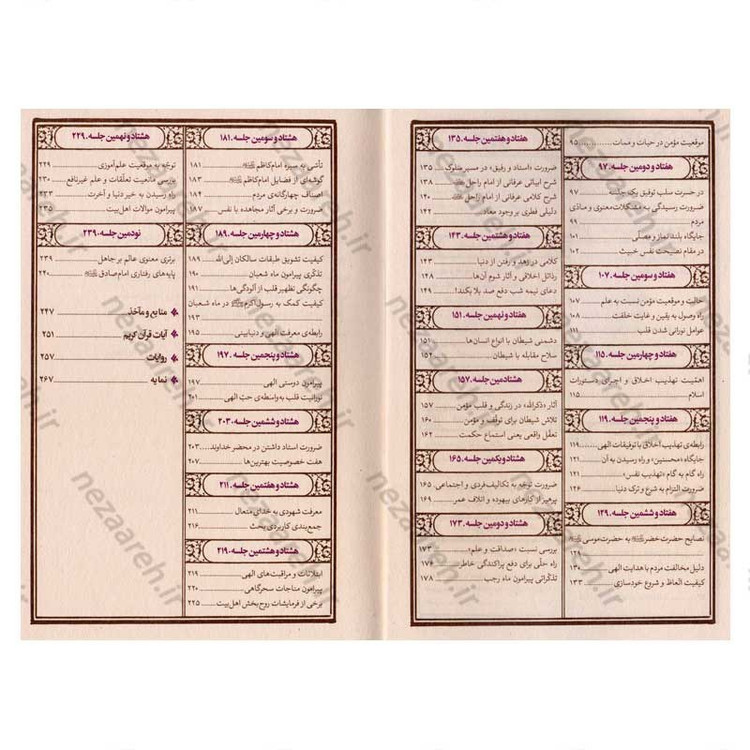 موقعیّت مؤمن در حیات و ممات ۹۵
هفتاد و دومین جلسه، ۹۷
در حسرت سلب توفیق یک جلسه ۹۷
ضرورت رسیدگی به مشکلات معنوی و مادّی
مردم ۹۹
جایگاه بلند نماز و مصلّی ۱۰۱
در مقام نصیحت نفس خبیث ۱۰۲
هفتاد و سومین جلسه، ۱۰۷
حالت و موقعیت مؤمن نسبت به علم ۱۰۷
راه وصول به یقین و غایت خلقت ۱۰۸
عوامل نورانی شدن قلب ۱۱۱
هفتاد و چهارمین جلسه، ۱۱۵
اهمّیت تهذیب اخلاق و اجرای دستورات
اسلام ۱۱۵
هفتاد و پنجمین جلسه، ۱۱۹
رابطه‌ی تهذیب اخلاق با توفیقات الهی ۱۱۹
جایگاه «محسنین» و راه رسیدن به آن ۱۲۱
راه گام به گام «تهذیب نفس» ۱۲۱
ضرورت التزام به شرع و ترک دنیا ۱۲۶
هفتاد و ششمین جلسه، ۱۲۹
نصایح حضرت خضر به حضرت موسی
۱۲۹
دلیل مخالفت مردم با هدایت الهی ۱۳۰
کیفیت العاظ و شروع خودسازی ۱۳۳
هفتاد و هفتمین جلسه، ۱۳۵
ضرورت «استاد و رفیق» در مسیر سلوک ۱۳۵
شرح ابیاتی عرفانی از امام راحل ۱۳۸
شرح کلامی عرفانی از امام راحل ۱۴۰
دلیلی فطری بر وجود معاد ۱۴۲
هفتاد و هشتمین جلسه، ۱۴۳
کلامی در زهد و رفتن از دنیا ۱۴۳
رذائل اخلاقی و آثار شوم آن‌ها ۱۴۸
دعای نیمه شب دفع صد بلا بکند! ۱۴۹
هفتاد و نهمین جلسه، ۱۵۱
دشمنی شیطان با انواع انسان‌ها ۱۵۱
سلاح مقابله با شیطان ۱۵۲
هشتادمین جلسه، ۱۵۷
آثار «ذکرالله» در زندگی و قلب مؤمن ۱۵۷
تلاش شیطان برای توقّف مؤمن ۱۶۰
تعقّل واقعی یعنی استماع حکمت ۱۶۲
هشتاد و یکمین جلسه، ۱۶۵
ضرورت توجّه به تکالیف فردی و اجتماعی ۱۶۵
پرهیز از کارهای بیهوده و اتلاف عمر ۱۶۹
هشتاد و دومین جلسه، ۱۷۳
بررسی نسبت «صداقت و علم» ۱۷۳
راه حلّی برای دفع پراکندگی خاطر ۱۷۶
تذکّراتی پیرامون ماه رجب ۱۷۸
هشتاد و سومین جلسه، ۱۸۱
تأسّی به سیره امام کاظم ۱۸۱
گوشه‌ای از فضایل امام کاظم ۱۸۳
اصناف چهارگانه‌ی مردم ۱۸۴
ضرورت و برخی آثار مجاهده با نفس ۱۸۷
هشتاد و چهارمین جلسه، ۱۸۹
کیفیت تشویق طبقات سالکان إلی‌الله ۱۸۹
تذکّری پیرامون ماه شعبان ۱۹۰
چگونگی تطهیر قلب از آلودگی‌ها ۱۹۱
کیفیت کمک به رسول اکرم در ماه شعبان
۱۹۳
رابطه‌ی معرفت الهی و دنیابینی ۱۹۵
هشتاد و پنجمین جلسه، ۱۹۷
پیرامون دوستی الهی ۱۹۷
نورانیت قلب به‌واسطه‌ی حبّ الهی ۲۰۱
هشتاد و ششمین جلسه، ۲۰۳
ضرورت استاد داشتن در محضر خداوند ۲۰۳
هفت خصوصیت بهترین‌ها ۲۰۷
هشتاد و هفتمین جلسه، ۲۱۱
معرفت شهودی به خدای متعال ۲۱۱
جمع‌بندی کاربردی بحث ۲۱۶
هشتاد و هشتمین جلسه، ۲۱۹
ابتلائات و مراقبت‌های الهی ۲۱۹
پیرامون مناجات سحرگاهی ۲۲۰
برخی از فرمایشات روح‌بخش اهل‌بیت ۲۲۵
هشتاد و نهمین جلسه، ۲۲۹
توجّه به موقعیت علم‌آموزی ۲۲۹
بررسی مانعیت تعلّقات و علم غیرنافع ۲۳۰
راه رسیدن به خیر دنیا و آخرت ۲۳۳
پیرامون موالات اهل‌بیت ۲۳۵
نودمین جلسه، ۲۳۹
برتری معنوی عالم بر جاهل ۲۳۹
پایه‌های رفتاری امام صادق ۲۴۰
منابع و مآخذ ۲۴۷
آیات قرآن کریم ۲۵۱
روایات ۲۵۷
نمایه ۲۶۷
nezaareh.ir